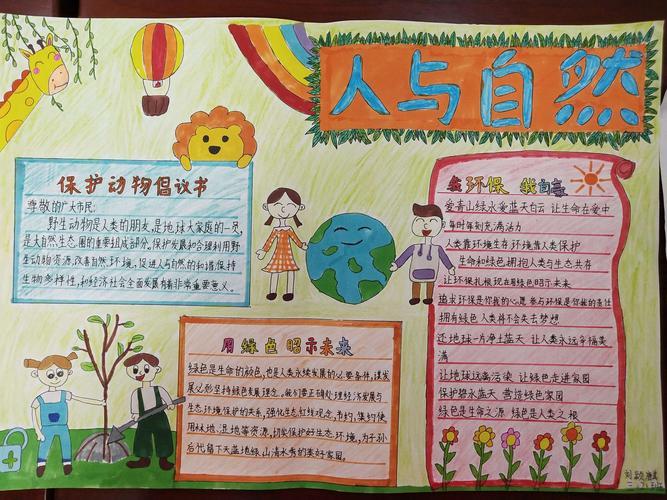 人与自然
保护动物倡议书
尊敬的广大市民:
野生动物是人类的朋友,是地球大家庭的一员,
是大自然生态圈的重要组成部分,保护发展和合理利用野
生动物资源,改善自然环境,促进人与自然的和谐,保持
生物多样性,和经济社会全面发展有着非常重要意义.
我环保 我自豪
爱青山绿水爱蓝天白云 让生命在爱中
每年时年时刻充满活力
人类靠环境生存环境靠人类保护
生命和绿色拥抱人类与生态共存
让环保扎根现在用绿色昭示未来
追求环保是你我的心愿 参与环保是你我的责任
拥有绿色人类将不会失去梦想
还地球一片净土蓝天 让人类永远幸福美
满
让地球远离污染 让绿色走进家园
保护碧水蓝天 营造绿色家园
绿色是生命之源 绿色是人类之根
用绿色昭示未来
绿色是生命的颜色,也是人类永续发展的必要条件,谋发
展必须坚持绿色发展理念,我们要正确处理经济发展与
生态环境保护的关系,强化生态红线观念,节约、集约使
用林地、湿地等资源,切实保护好生态环境,为子孙
后代留下天蓝地绿,山清水秀的美好家园。